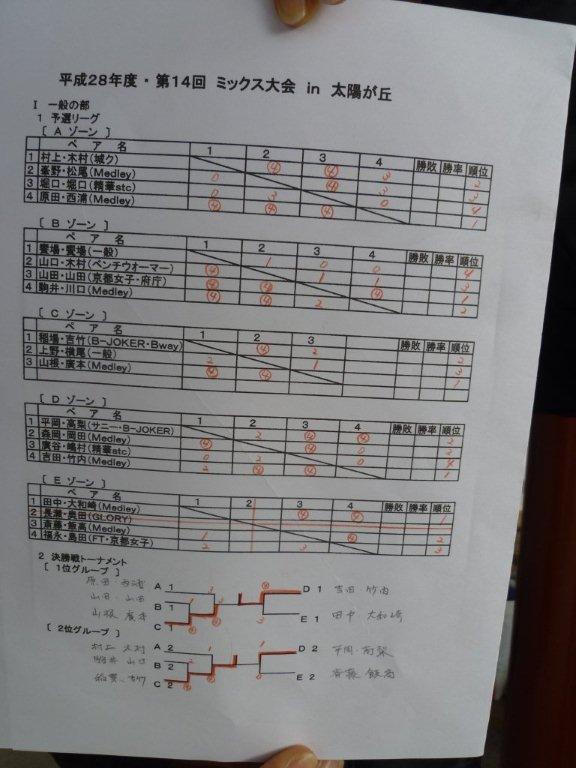 平成28年度・第14回 ミックス大会 in 太陽が丘
Ⅰ 一般の部
1 予選リーグ
[ A ゾーン ]
ペア 名 1 2 3 4 勝敗 勝率 順位
1 村上・木村(城ク) ④ ④ 3 2
2 峯野・松尾(Medley) 0 ④ 3
3 堀口・堀口(精華stc) 0 3 0 4
4 原田・西浦(Medley) ④ ④ ④ 1
[ B ゾーン ]
ペア 名 1 2 3 4 勝敗 勝率 順位
1 1 0 0 4
2 山口・木村(ベンチウオーマー) ④ 1 1 3
3 山田・山田(京都女子・府庁) ④ ④ ④ 1
4 駒井・川口(Medley) ④ ④ 2 2
[ C ゾーン ]
ペア 名 1 2 3 勝敗 勝率 順位
1 稲場・吉竹(B-JOKER・Bway) ④ 2 2
2 上野・横尾(一般) 2 1 3
3 山根・廣本(Medley) ④ ④ 1
[ D ゾーン ]
ペア 名 1 2 3 4 勝敗 勝率 順位
1 平岡・高梨(サニー・B-JOKER) 2 ④ ④ 2
2 森岡・岡田(Medley) ④
3 廣谷・嶋村(精華stc) 0 2 0 4
4 吉田・竹内(Medley) 2 ④ ④ 1
[ E ゾーン ]
ペア 名 1 2 3 4 勝敗 勝率 順位
1 田中・大和崎(Medley) ④ ④ 1
2 長瀬・奥田(GLORY)
3 斎藤・飯高(Medley) 1 ④ 2
4 福永・島田(FT・京都女子) 2 3 3
2 決勝戦トーナメント
[ 1位グループ ]
原田 西浦 A 1 D 1 吉田 竹内
山田・山田 B 1
山根 廣本 C 1 E 1 田中 大和崎
[ 2位グループ ]
村上 木村 A 2 D 2 平岡・高梨
駒井 B 2
C 2 E 2 斎藤 飯高